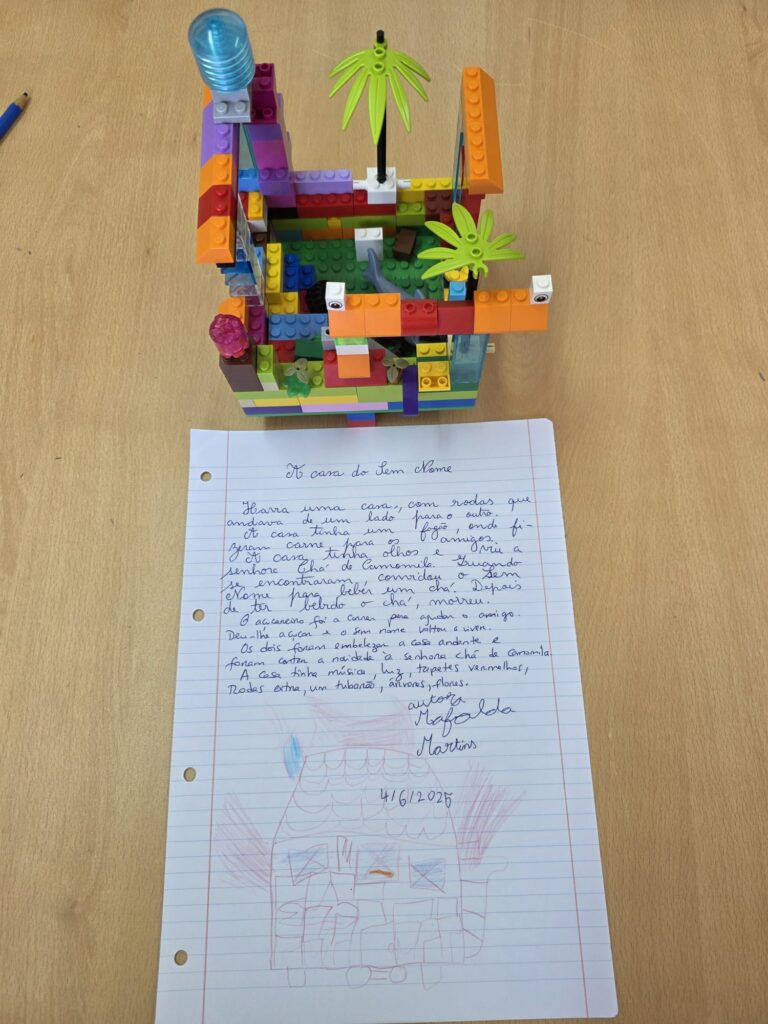 A casa do Sem Nome
Havia uma casa, com rodas que
andava de um lado para o outro.
A casa tinha um fogão, onde fi-
zeram carne para os amigos.
A casa tinha olhos e viu a
senhora Chá de Camomila. Quando
se encontraram, convidou o Sem
Nome para beber um chá. Depois
de ter bebido o chá, morreu.
O açucareiro foi a correr para ajudar o amigo.
Deu-lhe açucar e o sem nome voltou a viver.
Os dois foram embelezar a casa andante e
foram contar a novidade à senhora chá de camomila.
A casa tinha música, luz, tapetes vermelhos,
Rodas extra, um tubarão, árvores, flores.
autora
Mafalda
Martins
4/6/2025